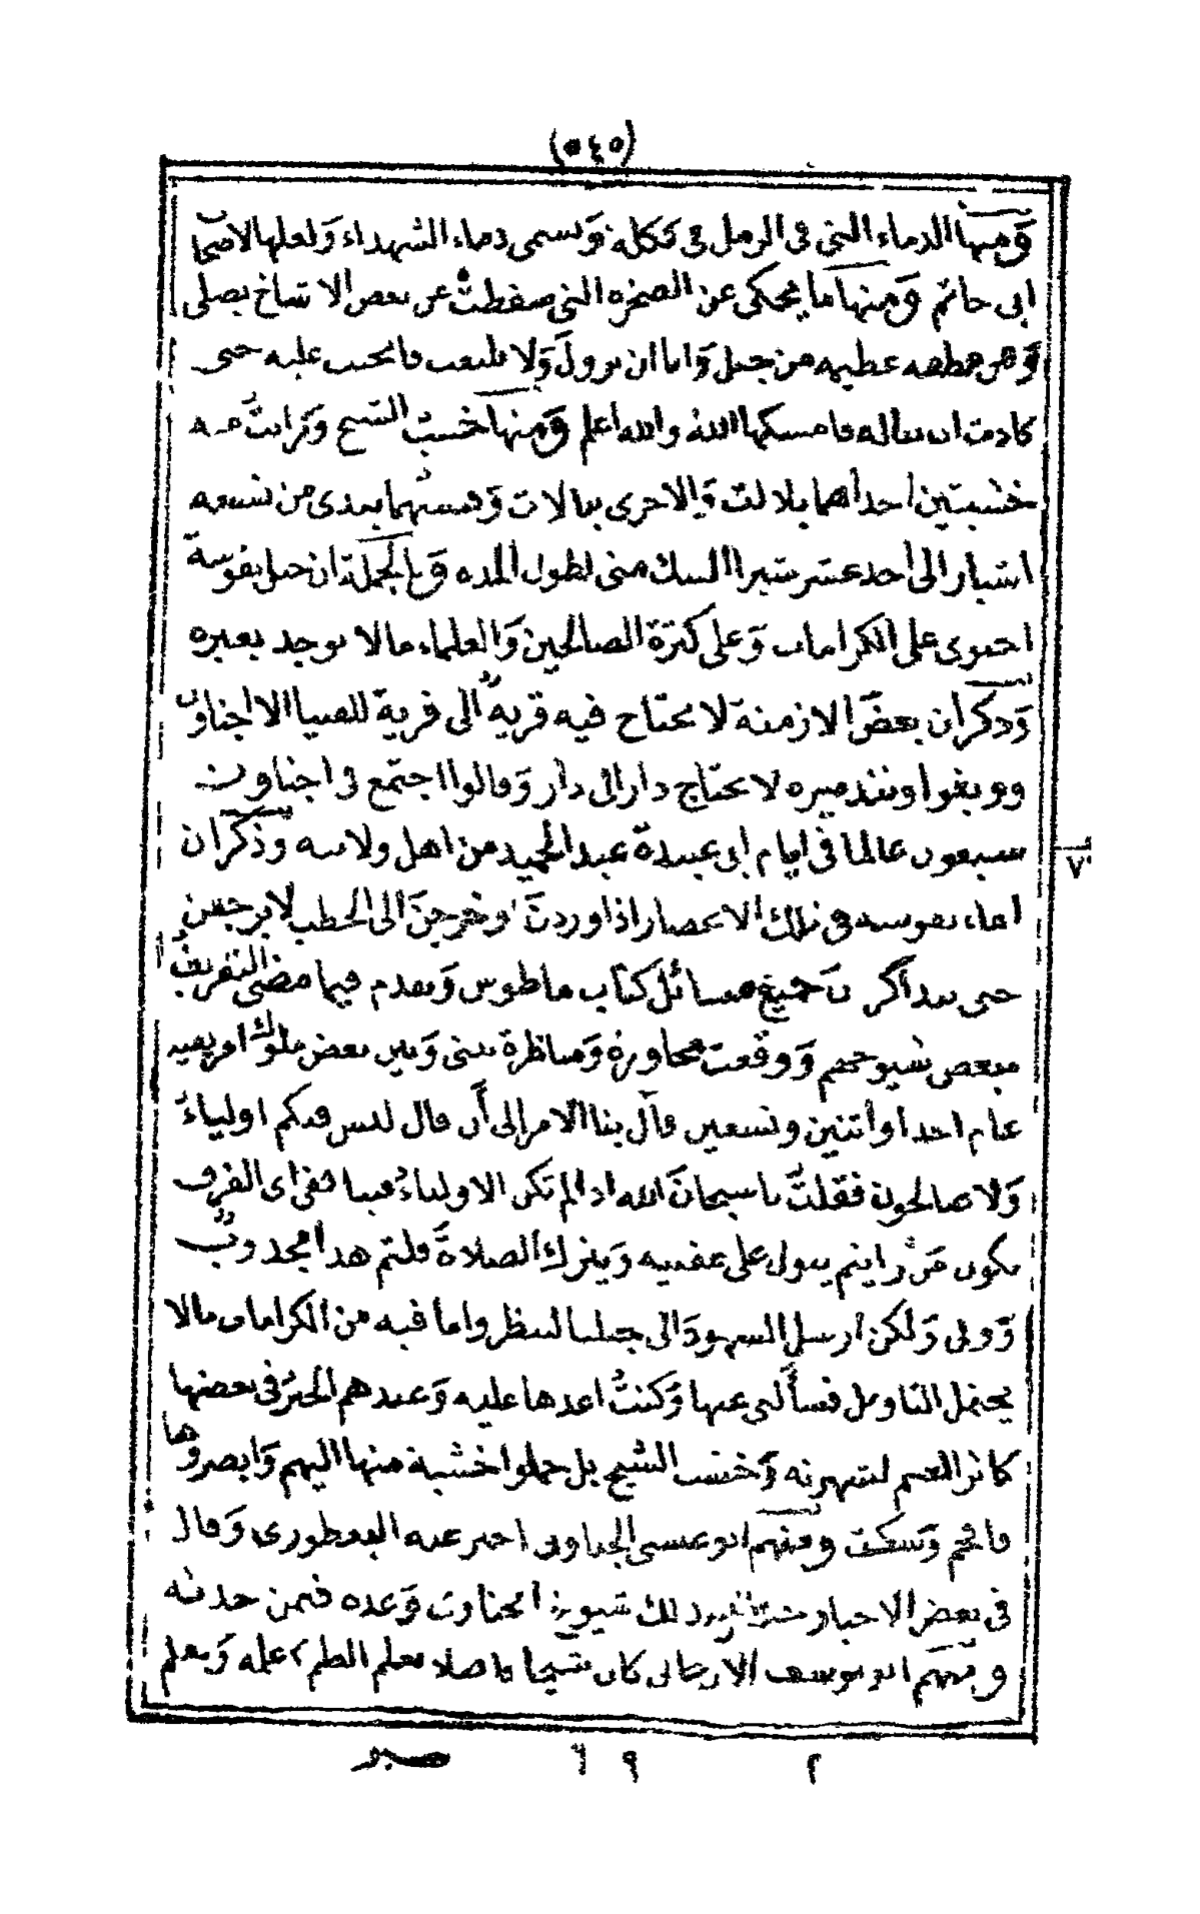 (٥٤٥)
ومنها الدماء التي في الرمل في تكله وتسمى دماء الشهداء ولعلها لاصحاب
ابي حاتم ومنها ما يحكى عن الصخرة التي سقطت عن بعض الاشياخ يصلي
وهي عظيمة من جبل واما ان يزول ولا فانجب عليه حتى
كادت ان تناله فامسكها الله والله اعلم ومنها خشب الشيخ وقرات
خشبتين احداهما بلالت والاخرى بمالات وقستهما بيدي من تسعة
اشبار الى احد عشر شبرا الشك مني لطول المدة وبالجملة ان جبل نفوسة
احتوى على الكرامات وعلى كثرة الصالحين والعلماء ما لا يوجد بغيره
وذكر ان بعض الازمنة لا تحتاج فيه قرية الى قرية للفتيا الا اجناون
وويغوا وتندميره لا تحتاج دار الى دار وقالوا اجتمع في اجناون
سبعون عالما في ايام ابي عبيدة عبد الحميد من اهل ولايته وذكر ان
اماء نفوسة في تلك الاعصار اذا وردن او خرجن الى الحطب لا يرجعن
حتى يتذاكرن جميع مسائل كتاب ماطوس وتقدم فيما مضى التعريف
ببعض شيوخهم ووقعت محاورة ومناظرة بيني وبين بعض ملوك افريقية
عام احد او اثنين وتسعين قال بنا الامر الى أن قال ليس فيكم اولياء
ولا صالحون فقلت يا سبحان الله اذا لم تكن الاولياء فينا ففي اي الفرق
يكون من رايتم يبول على عقبيه ويترك الصلاة قلتم هذا مجذوب
وولي ولكن ارسل الشهود الى جبلنا لينظروا ما فيه من الكرامات ما لا
يحتمل التاويل فسألني عنها وكنت اعدها عليه وعندهم الخبر في بعضها
كاثر القدم لشهرته وخشب الشيخ بل حملوا خشبة منها اليهم وابصروها
فافحم وسكت ومنهم ابو عيسى الجناوني اخبر عنه البغطوري وقال
في بعض الاخبار ذلك شيوخ اجناون وعده فيمن حدثه
ومنهم ابو يوسف الارجاني كان شيخا فاضلا معلم الطم علمه ومعلم
٧
٢ ٩ ٦ صبر